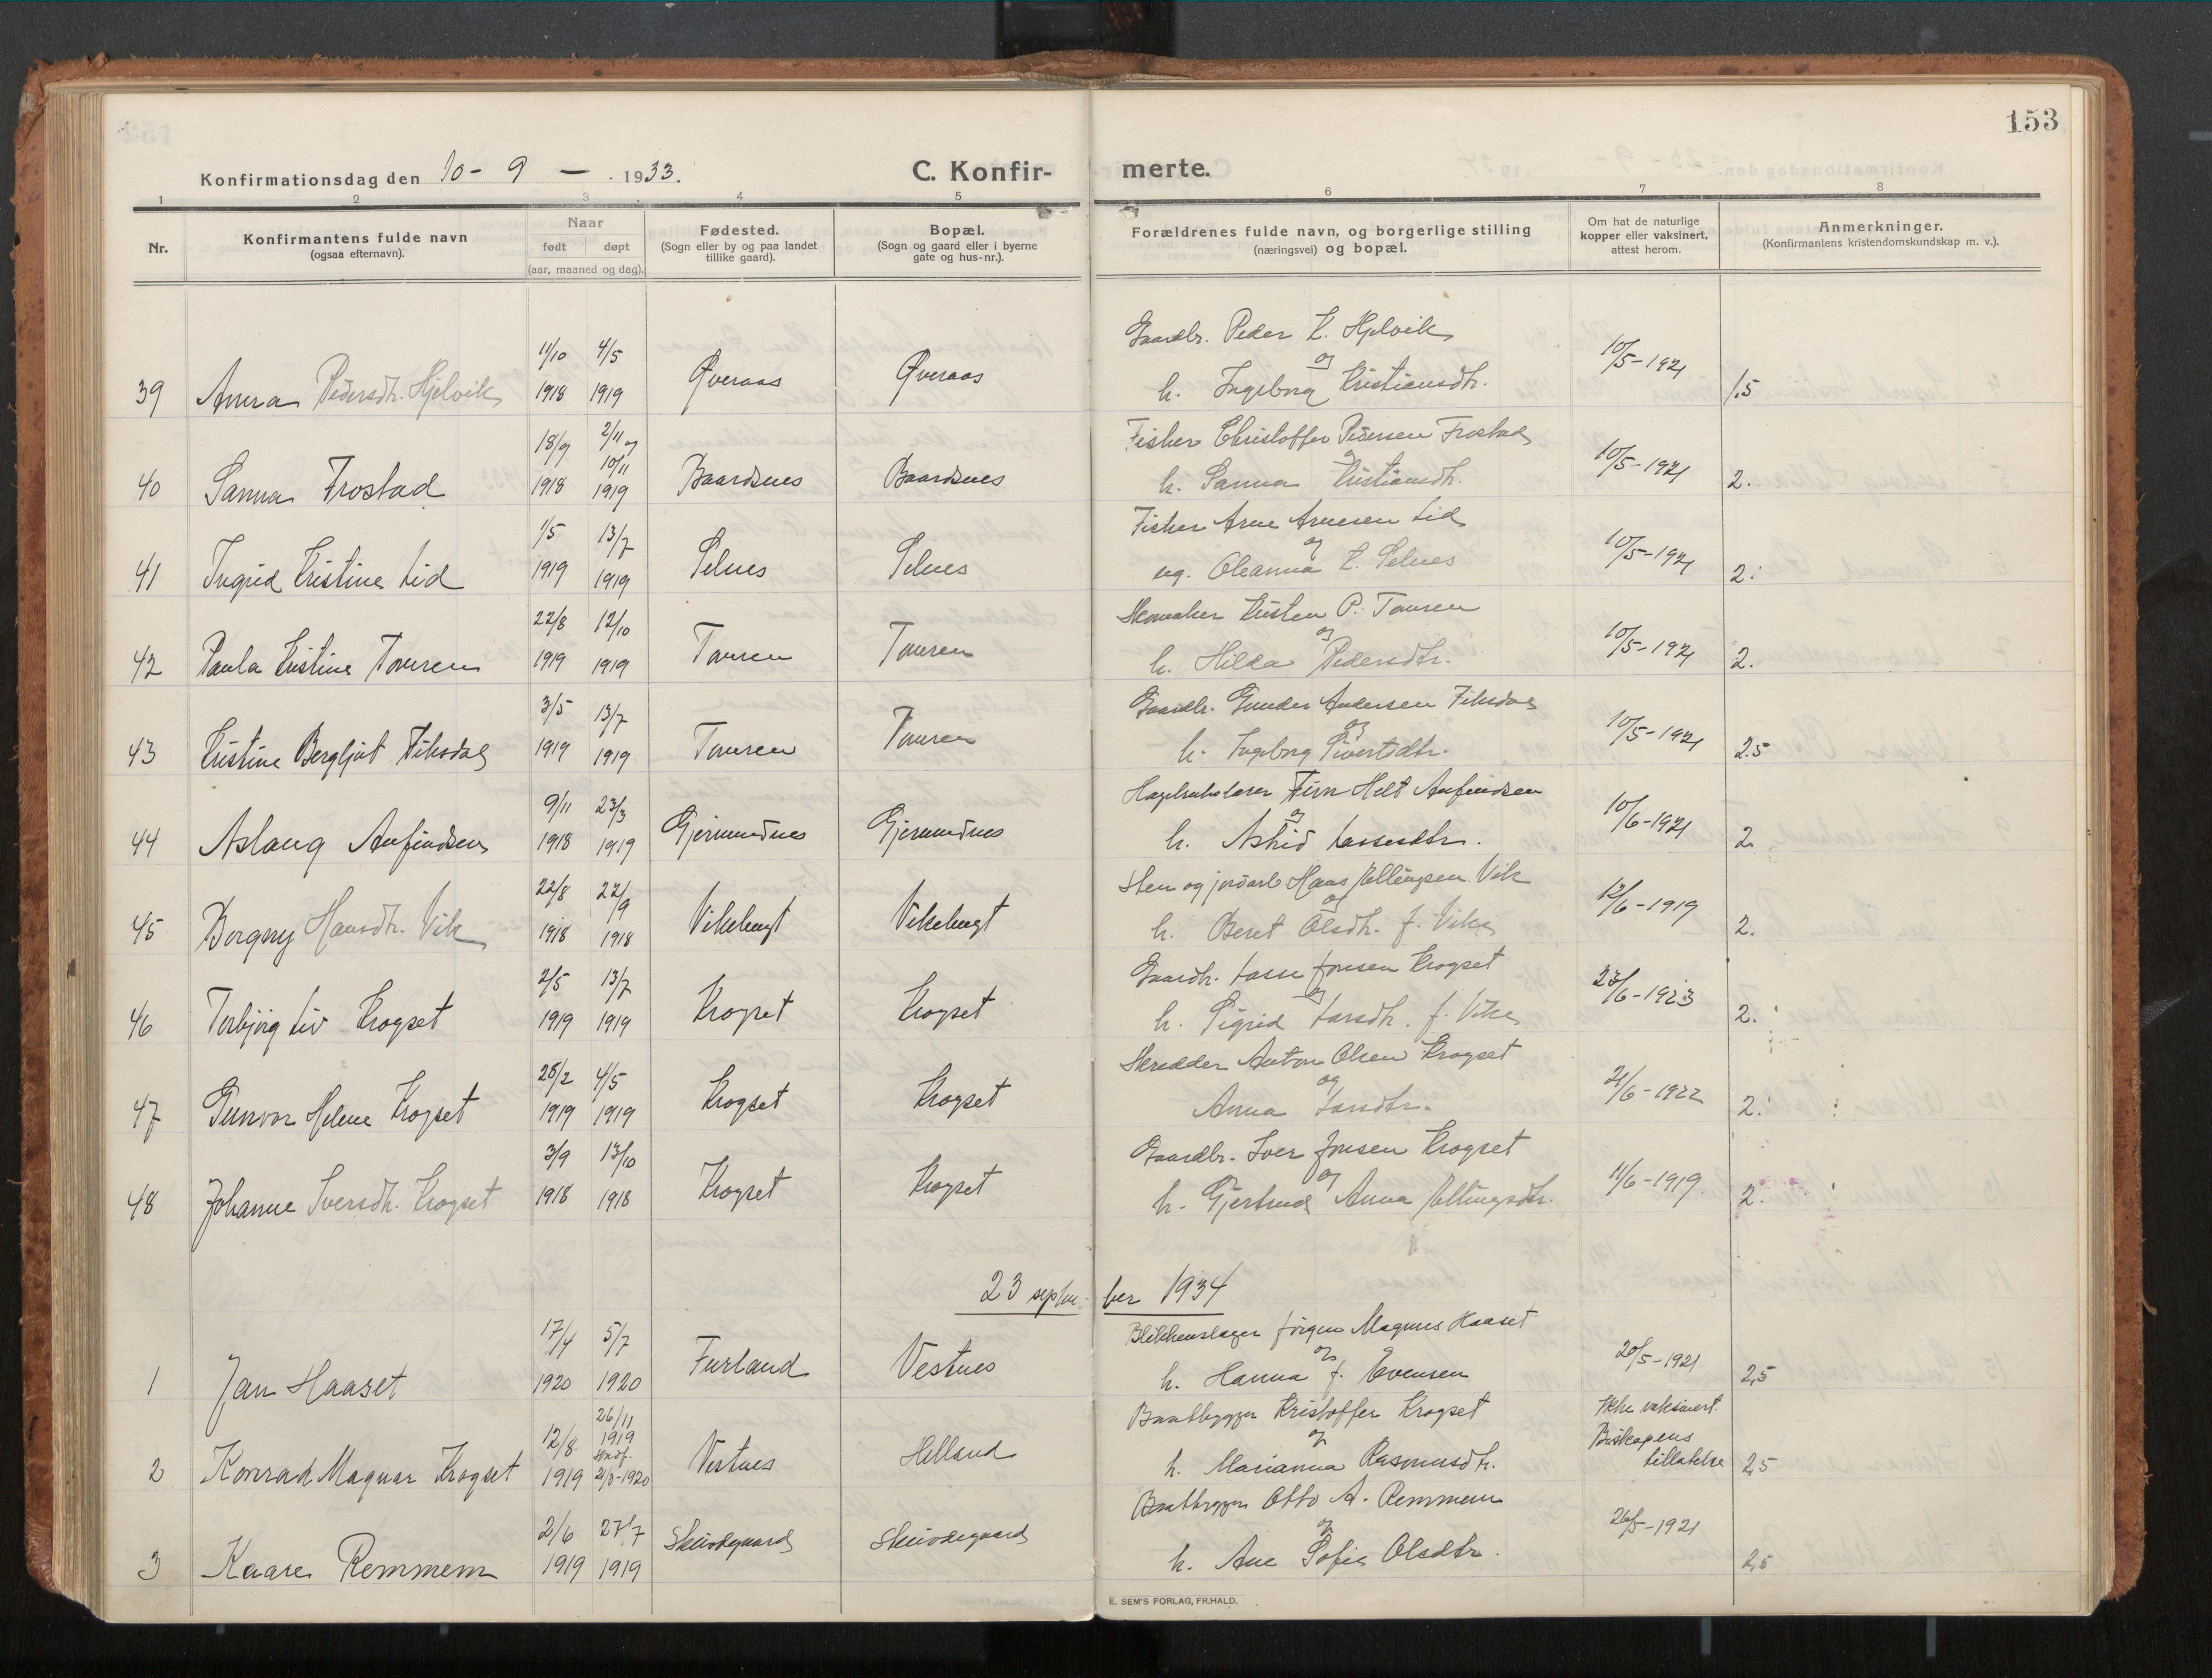 153
Konfirmationsdag den 10 - 9 — . 1933.
C. Konfir-
merte.
1 2 3 4 5 6 7 8
Nr.
Konfirmantens fulde navn
(ogsaa efternavn).
Naar
født døpt
(aar, maaned og dag).
Fødested.
(Sogn eller by og paa landet
tillike gaard).
Bopæl.
(Sogn og gaard eller i byerne
gate og hus-nr.).
Forældrenes fulde navn, og borgerlige stilling
(næringsvei) og bopæl.
Om hat de naturlige
kopper eller vaksinert,
attest herom.
Anmerkninger.
(Konfirmantens kristendomskundskap m. v.).
11/10 4/5 Gaardbr. Peder K. Hjelvik
og
39 Anna Pedersdtr. Hjelvik 1918 1919 Øveraas Øveraas h. Ingeborg Kristiansdtr. 10/5-1921 1.5
18/9 2/11 og 10/11 Fisker Christoffer Pedersen Frostad
og
40 Sanna Frostad 1918 1919 Baardsnes Baardsnes h. Sanna Kristiansdtr. 10/5-1921 2.
1/5 13/7 Fisker Arne Arnesen Lid
og
41 Ingrid Kristine Lid 1919 1919 Selnes Selnes ug. Oleanna K. Selnes 10/5-1921 2.
22/8 12/10 Skomaker Kristen P. Tomren
og
42 Paula Kristine Tomren 1919 1919 Tomren Tomren h. Hilda Pedersdtr. 10/5-1921 2.
3/5 13/7 Gaardbr. Gunder Andersen Fiksdal
og
43 Kristine Bergljot Fiksdal 1919 1919 Tomren Tomren h. Ingeborg Sivertsdtr. 10/5-1921 2.5
9/11 23/3 Finn Helt Anfindsen
og
44 Aslaug Anfindsen 1918 1919 Gjermundnes Gjermundnes h. Astrid Lassesdtr. 10/6-1921 2
22/8 22/9 Sten og jordarb. Hans Ellingsen Vik
og
45 Borgny Hansdtr. Vik 1918 1918 Vikebugt Vikebugt h. Beret Olsdtr. f. Vike 12/6-1919 2.
2/5 13/7 Gaardbr. Lasse Jonsen Krogset
og
46 Torbjørg Liv Krogset 1919 1919 Krogset Krogset h. Sigrid Larsdtr. f. Vike 23/6-1923 2.
28/2 4/5 Skredder Anton Olsen Krogset
og
47 Gunvor Helene Krogset 1919 1919 Krogset Krogset Anna Larsdtr. 21/6-1922 2.
3/9 13/10 Gaardbr. Iver Jonsen Krogset
og
48 Johanne Iversdtr. Krogset 1918 1918 Krogset Krogset h. Gjertrud Anna Ellingsdtr. 11/6-1919. 2.
23 septem- ber 1934
17/4 5/7 Blikkenslager Jørgen Magnus Haaset
og
1 Jan Haaset 1920 1920 Furland Vestnes h. Hanna f. Evensen 20/5-1921 2,5
12/8 26/11 1919 Baatbygger Kristoffer Krogset Ikke vaksinert.
stadf. og Biskopens
2 Konrad Magnar Krogset 1919 21/3-1920 Vestnes Helland h. Marianna Rasmusdtr. tillatelse 2,5
2/6 27/7 Baatbygger Otto A. Remmem
og
3 Kaare Remmem 1919 1919 Skeidsgaard Skeidsgaard h. Ane Sofie Olsdtr. 26/5-1921 2,5
E. SEM'S FORLAG, FR.HALD.